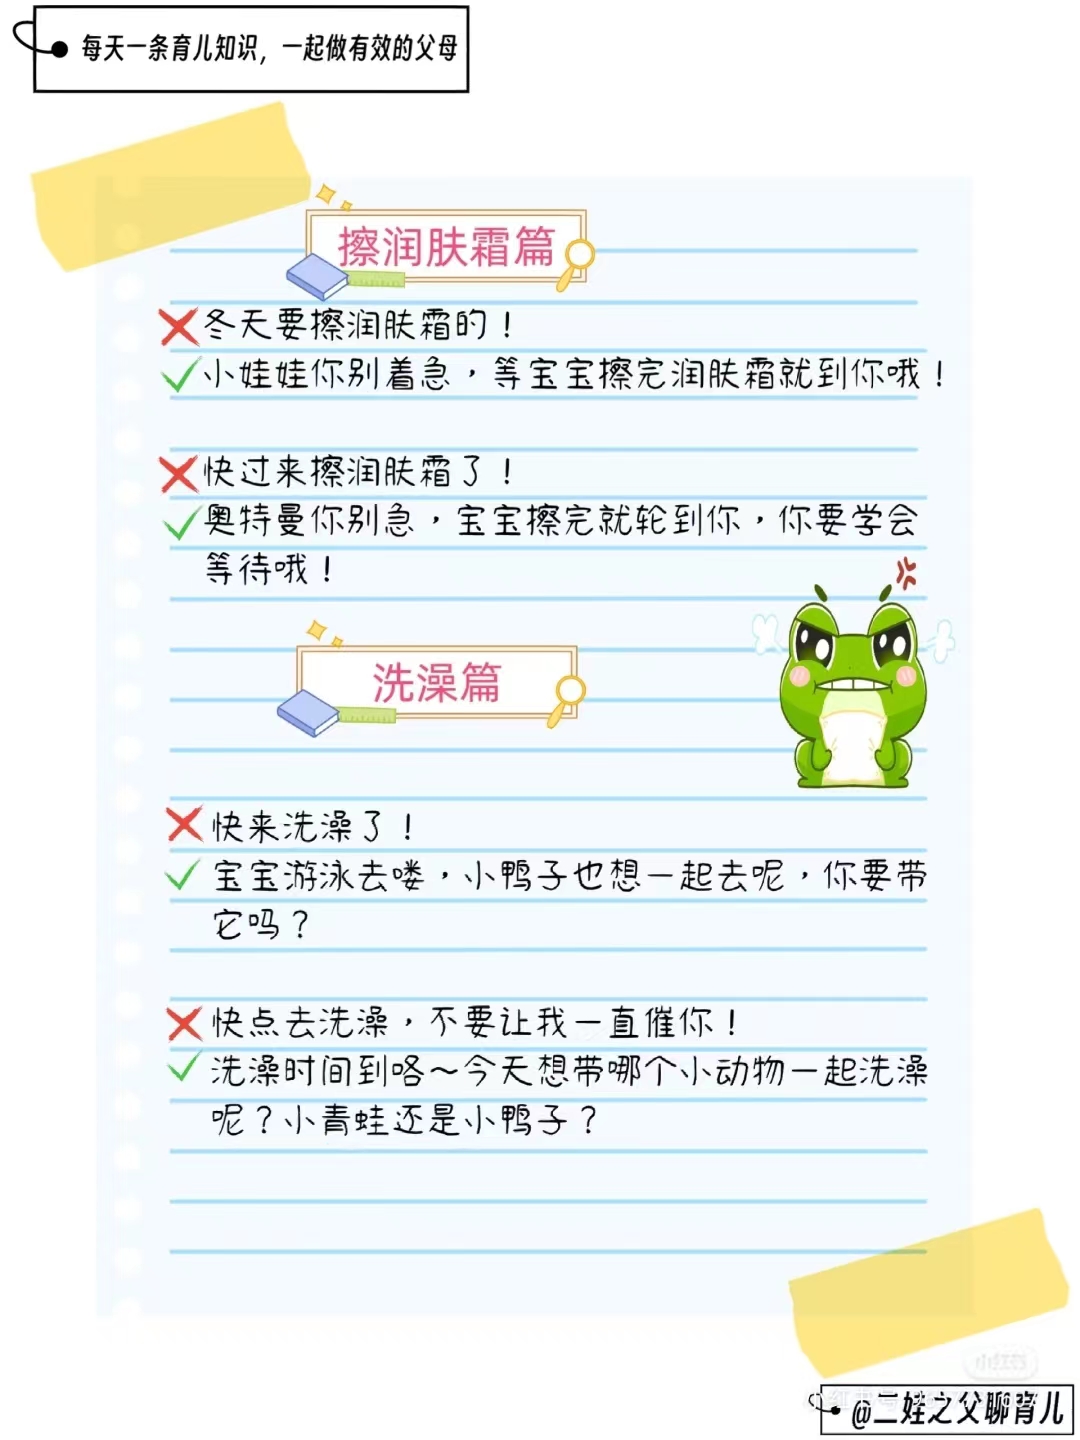 每天一条育儿知识，一起做有效的父母
擦润肤霜篇
冬天要擦润肤霜的！
小娃娃你别着急，等宝宝擦完润肤霜就到你哦！
快过来擦润肤霜了！
奥特曼你别急，宝宝擦完就轮到你，你要学会
等待哦！
洗澡篇
快来洗澡了！
宝宝游泳去喽，小鸭子也想一起去呢，你要带
它吗？
快点去洗澡，不要让我一直催你！
洗澡时间到咯～今天想带哪个小动物一起洗澡
呢？小青蛙还是小鸭子？
小红书
@二娃之父聊育儿